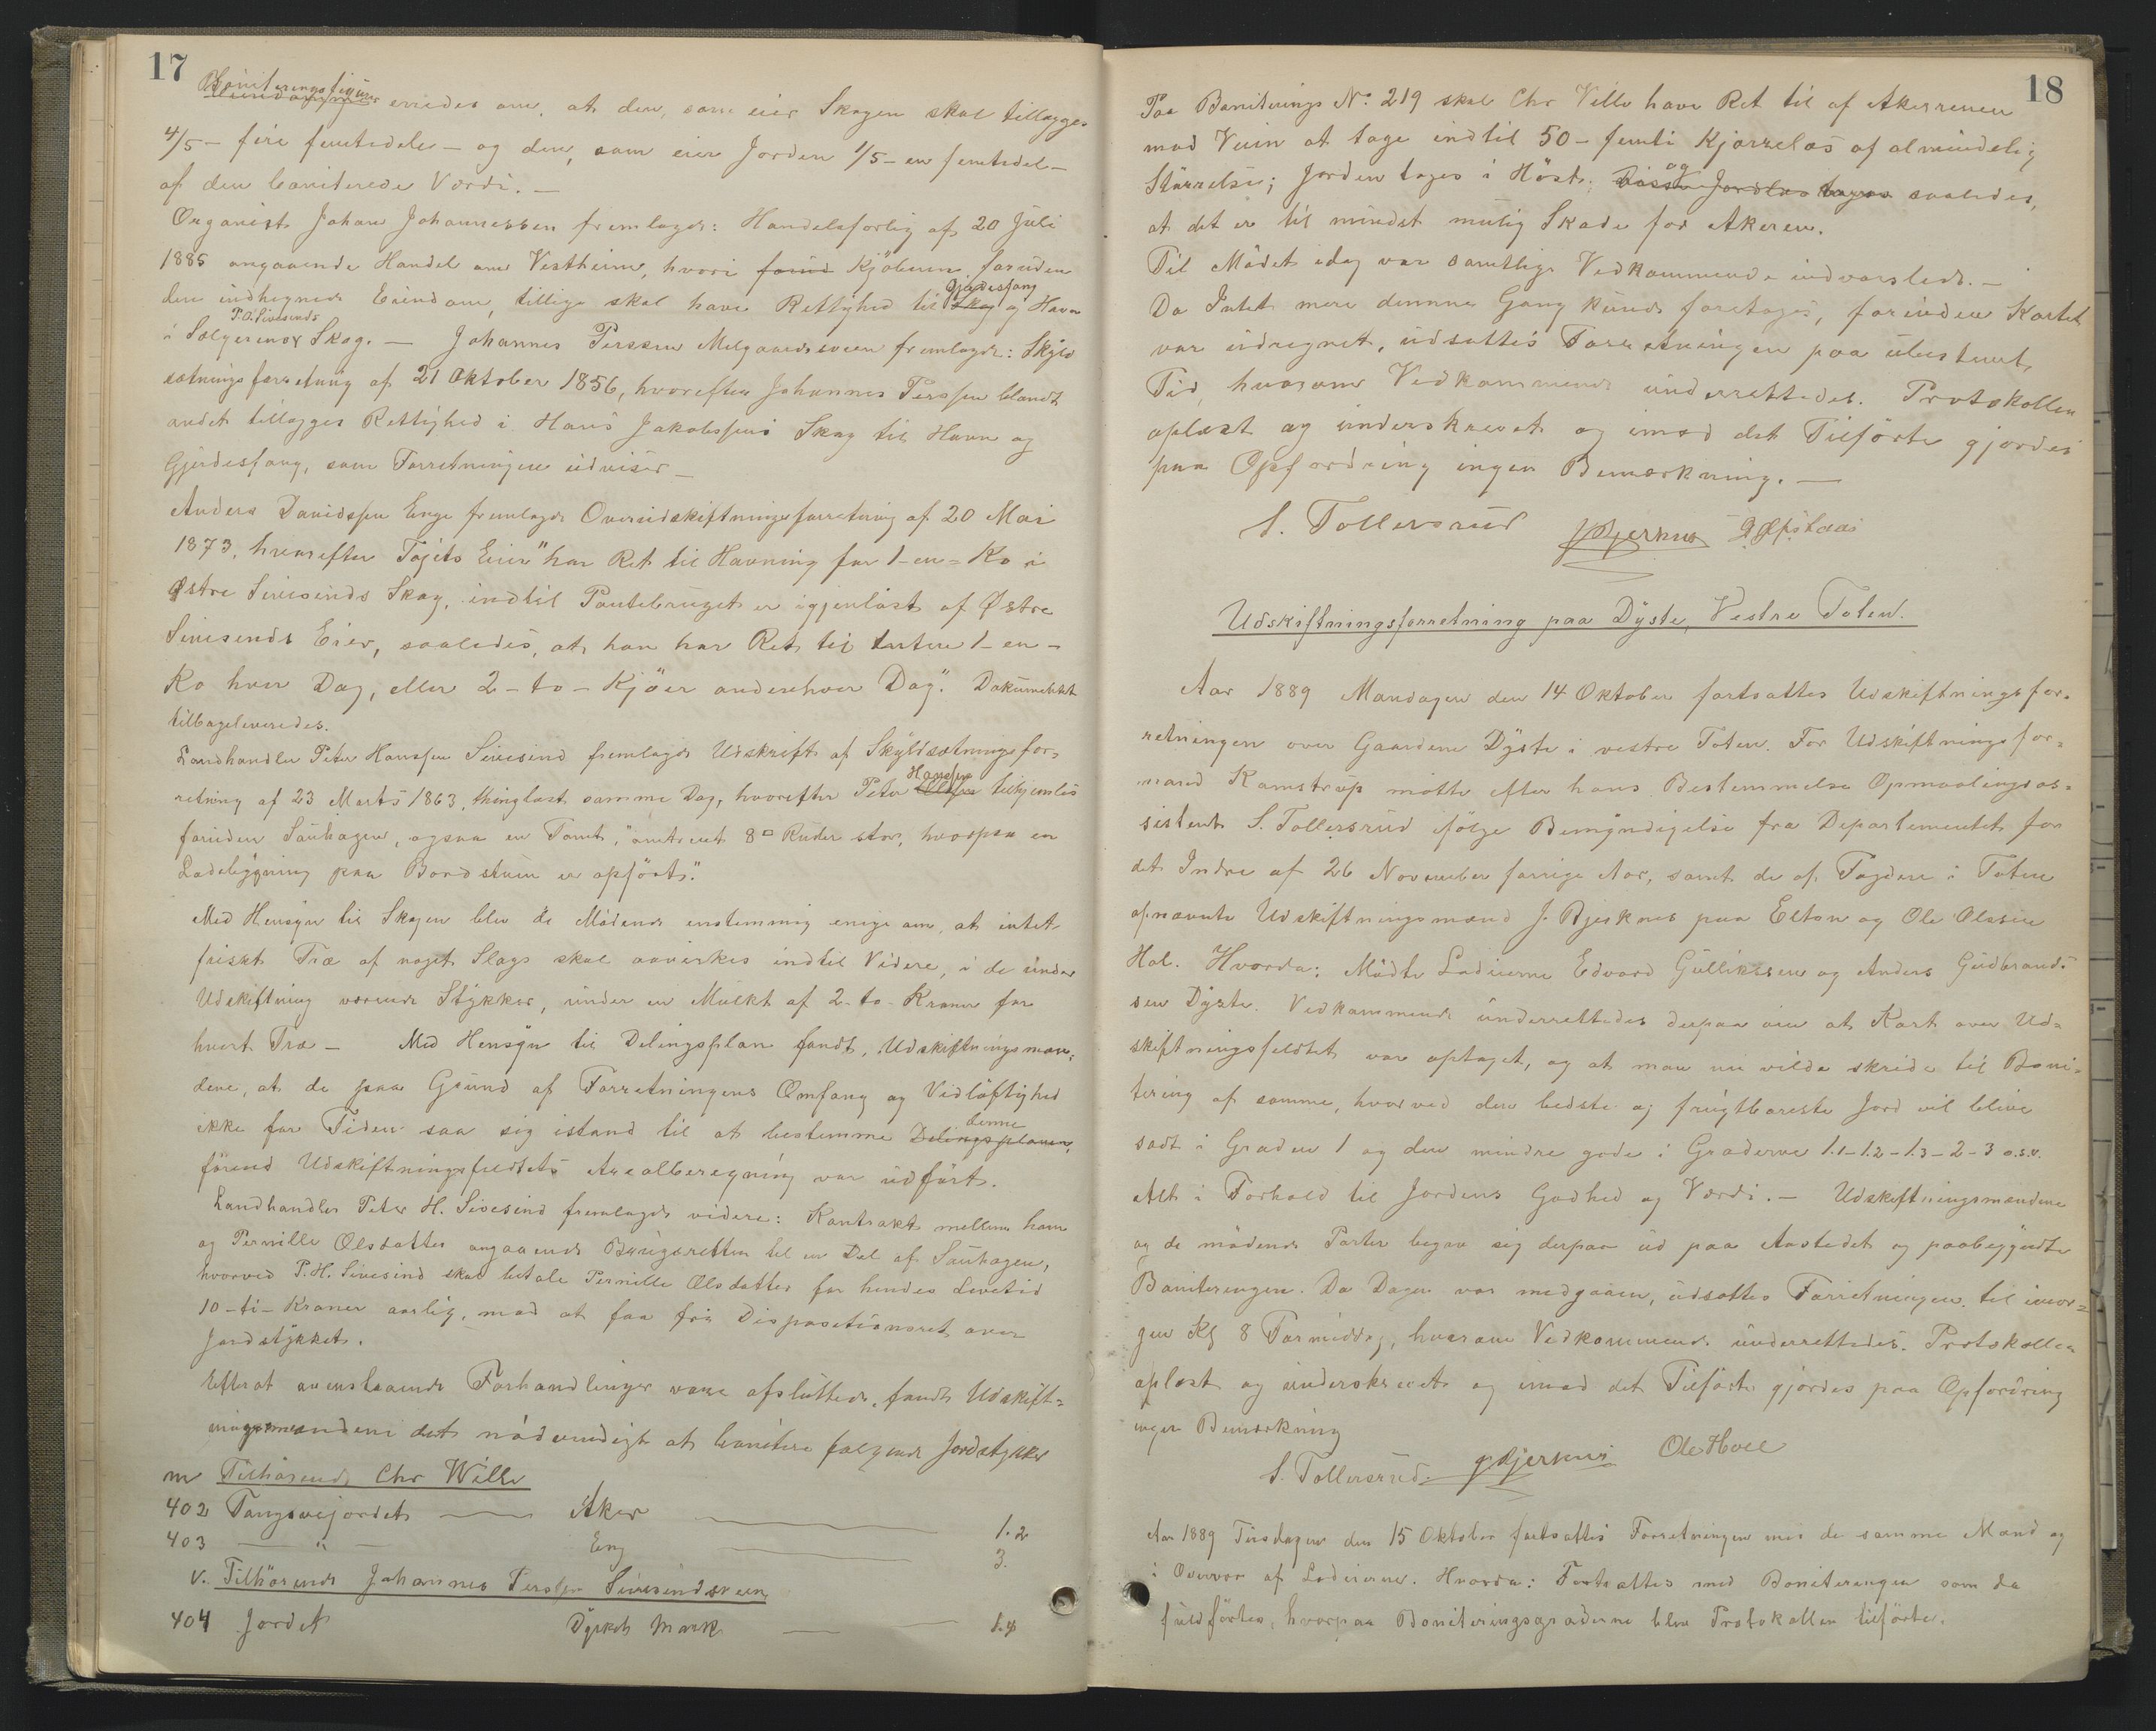 17
Boniteringsfigurer
enedes om, at den, som eier Skogen skal tillægges
4/5 - fire femtedele - og den, som eier Jorden 1/5 - en femtedel -
af den boniterede Værdi. -
Organist Johan Johannessen fremlagde: Handelsforlig af 20 Juli
1885 angaaende Handel om Vestheim, hvori forud Kjöberen, foruden
den indhegnede Eiendom, tillige skal have Rettighed til Skog Gjærdesfang og Havn
i Sælgerens P. O. Sivesinds Skog. - Johannes Persen Melgaardsveen fremlagde: Skyld-
sætningsforretning af 21 Oktober 1856, hvorefter Johannes Perssen blandt
andet tillægges Rettighed i Hans Jakobsens Skog til Havn og
Gjærdesfang, som Forretningen udviser -
Anders Davidsen Enge fremlagde Overudskiftningsforretning af 20 Mai
1873, hvorefter Tøjets Eier" har Ret til Havning for 1 - en - Ko i
Østre Sivesinds Skog, indtil Pantebruget er igjenløst af Østre
Sivesinds Eier, saaledes, at han har Ret til enten 1 - en -
Ko hver Dag, eller 2 - to - Kjöer anden hver Dag". Dokumentet
tilbageleveredes.
Landhandler Peter Hanssen Sivesind fremlagde Udskrift af Skyldsætningsfor-
retning af 23 Marts 1863, thinglæst samme Dag, hvorefter Peter Olssen Hanssen tilkjendes
foruden Sauhagen, ogsaa en Tomt, "omtrent 8 □ Ruder stor, hvorpaa en
Ladebygning paa Bordstuen er opfört".
Med Hensyn til Skogen blev de Mödende enstemmig enige om, at intet
friskt Træ af noget Slags skal aavirkes indtil Videre, i de under
Udskiftning værende Stykker, under en Mulkt af 2 - to - Kroner for
hvert Træ - Med Hensyn til Delingsplan fandt Udskiftningsmæn-
dene, at de paa Grund af Forretningens Omfang og Vidlöftighed
ikke for Tiden saa sig istand til at bestemme Delingsplanen denne,
förend Udskiftningsfeldtets Arealberegning var udfört.
Landhandler Peter H. Sivesind fremlagde videre: Kontrakt mellem ham
og Pernille Olsdatter angaaende Brugsretten til en Del af Sauhagen,
hvorved P. H. Sivesind skal betale Pernille Olsdatter for hendes Levetid
10 - ti - Kroner aarlig, mod at faa fri Dispositionsret over
Jordstykket.
Efterat ovenstaaende Forhandlinger vare afsluttede, fandt Udskift-
ningsmændene det nödvendigt at bonitere følgende Jordstykker
m Tilhörende Chr Wille
402 Tangsvejordet — Aker — 1.2
403 — " — Eng — 3.
v. Tilhörende Johannes Perssen Sivesindsveen
404 Jordet Dyrket Mark — 1.4
18
Paa Boniterings No 219 skal Chr Velle have Ret til af Akerrenen
mod Veien at tage indtil 50 - femti Kjørrelæs af almindelig
Størrelse; Jorden tages i Höst; Disse Jordlæs tages og saaledes,
at det er til mindst mulig Skade for Akeren.
Til Mödet idag var samtlige Vedkommende indvarslede. -
Da Intet mere denne Gang kunde foretages, forinden Kartet
var udregnet, udsattes Forretningen paa ubestemt
Tid, hvorom Vedkommende underrettedes. Protokollen
oplæst og underskrevet og imod det Tilförte gjordes
paa Opfordring ingen Bemærkning. -
S. Tollersrud JBjerknes
Udskiftningsforretning paa Dyste, Vestre Toten.
Aar 1889 Mandagen den 14 Oktober fortsattes Udskiftningsfor-
retningen over Gaardene Dyste i vestre Toten. For Udskiftningsfor-
mand Kamstrup mötte efter hans Bestemmelse Opmaalingsas-
sistent S. Tollersrud ifölge Bemyndigelse fra Departementet for
det Indre af 26 November forrige Aar, samt de af Fogden i Toten
opnævnte Udskiftningsmænd J. Bjerknes paa Elton og Ole Olssen
Hol. Hvorda: Mödte Lodeierne Edvard Gulliksen og Anders Gudbrand-
sen Dyste. Vedkommende underrettedes derpaa om at Kart over Ud-
skiftningsfeldtet var optaget, og at man nu vilde skride til Boni-
tering af samme, hvorved den bedste og frugtbareste Jord vil blive
sadt i Graden 1 og den mindre gode i Graderne 1.1 - 1.2 - 1.3 - 2 - 3 o.s.v.
Alt i Forhold til Jordens Godhed og Værdi. - Udskiftningsmændene
og de mödende Parter begav sig derpaa ud paa Aastedet og paabegyndte
Boniteringen. Da Dagen var medgaaen, udsattes Forretningen til imor-
gen Kl 8 Formiddag, hvorom Vedkommende underrettedes. Protokollen
oplæst og underskrevet og imod det Tilförte gjordes paa Opfordring
ingen Bemærkning
S. Tollersrud. JBjerknes Ole Hoel
Aar 1889 Tirsdagen den 15 Oktober fortsattes Forretningen med de samme Mænd og
i Overvær af Lodeierne. Hvorda: Fortsattes med Boniteringen som da
fuldförtes, hvorpaa Boniteringsgraderne blev Protokollen tilförte.